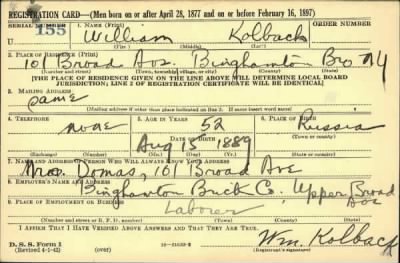 REGISTRATION CARD—(Men born on or after April 28, 1877 and on or before February 16, 1897)
SERIAL NUMBER 1. NAME (Print)
155 William Kolback
(First) (Middle) (Last)
2. PLACE OF RESIDENCE (Print)
101 Broad Ave. Binghamton Bro NY
(Number and street) (Town, township, village, or city) (County) (State)
[THE PLACE OF RESIDENCE GIVEN ON THE LINE ABOVE WILL DETERMINE LOCAL BOARD
JURISDICTION; LINE 2 OF REGISTRATION CERTIFICATE WILL BE IDENTICAL]
3. MAILING ADDRESS
same
[Mailing address if other than place indicated on line 2. If same insert word same]
4. TELEPHONE 5. AGE IN YEARS 6. PLACE OF BIRTH
none 52 Russia
DATE OF BIRTH (Town or county)
Aug 15 1889
(Exchange) (Number) (Mo.) (Day) (Yr.) (State or country)
7. NAME AND ADDRESS OF PERSON WHO WILL ALWAYS KNOW YOUR ADDRESS
Mrs. Domas, 101 Broad Ave
8. EMPLOYER'S NAME AND ADDRESS
Binghamton Brick Co, Upper Broad Ave
9. PLACE OF EMPLOYMENT OR BUSINESS
Laborer
(Number and street or R. F. D. number) (Town) (County) (State)
I AFFIRM THAT I HAVE VERIFIED ABOVE ANSWERS AND THAT THEY ARE TRUE.
D. S. S. Form 1
(Revised 4-1-42) (over) Wm. Kolback